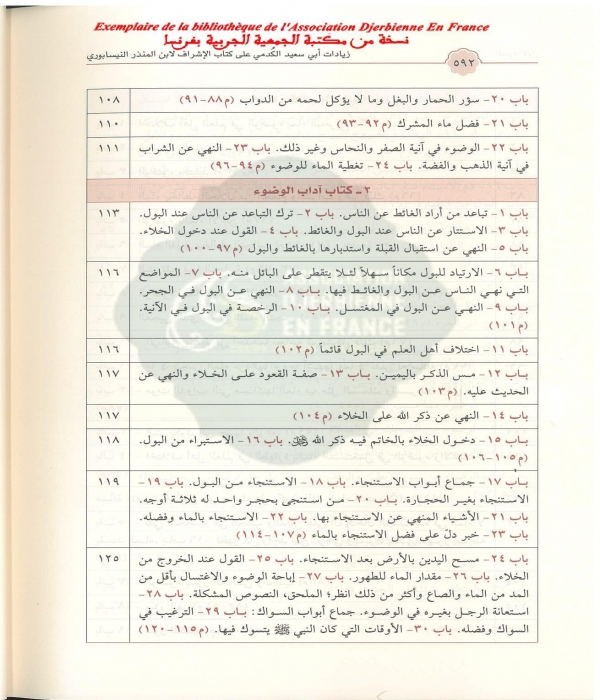 Exemplaire de la bibliothèque de l'Association Djerbienne En France
نسخة من مكتبة الجمعية الجربية بفرنسا
زيادات أبي سعيد الكدمي على كتاب الإشراف لابن المنذر النيسابوري
٥٩٢
باب ٢٠- سؤر الحمار والبغل وما لا يؤكل لحمه من الدواب (م٨٨-٩١) ١٠٨
باب ٢١- فضل ماء المشرك (م٩٢-٩٣) ١١٠
باب ٢٢- الوضوء في آنية الصفر والنحاس وغير ذلك. باب ٢٣- النهي عن الشراب ١١١
في آنية الذهب والفضة. باب ٢٤- تغطية الماء للوضوء (م٩٤-٩٦)
٢- كتاب آداب الوضوء
باب ١- تباعد من أراد الغائط عن الناس. باب ٢- ترك التباعد عن الناس عند البول. ١١٣
باب ٣- الاستتار عن الناس عند البول والغائط. باب ٤- القول عند دخول الخلاء.
باب ٥- النهي عن استقبال القبلة واستدبارها بالغائط والبول (م٩٧-١٠٠)
باب ٦- الارتياد للبول مكاناً سهلاً لئلا يتقطر على البائل منه. باب ٧- المواضع ١١٦
التي نهي الناس عن البول والغائط فيها. باب ٨- النهي عن البول في الجحر.
باب ٩- النهي عن البول في المغتسل. باب ١٠- الرخصة في البول في الآنية.
(م١٠١)
باب ١١- اختلاف أهل العلم في البول قائماً (م١٠٢) ١١٦
باب ١٢- مس الذكر باليمين. باب ١٣- صفة القعود على الخلاء والنهي عن ١١٧
الحديث عليه. (م١٠٣)
باب ١٤- النهي عن ذكر الله على الخلاء (م١٠٤) ١١٧
باب ١٥- دخول الخلاء بالخاتم فيه ذكر الله ﷻ. باب ١٦- الاستبراء من البول. ١١٨
(م١٠٥-١٠٦)
باب ١٧- جماع أبواب الاستنجاء. باب ١٨- الاستنجاء من البول. باب ١٩- ١١٩
الاستنجاء بغير الحجارة. باب ٢٠- من استنجى بحجر واحد له ثلاثة أوجه.
باب ٢١- الأشياء المنهي عن الاستنجاء بها. باب ٢٢- الاستنجاء بالماء وفضله.
باب ٢٣- خبر دلّ على فضل الاستنجاء بالماء (م١٠٧-١١٤)
باب ٢٤- مسح اليدين بالأرض بعد الاستنجاء. باب ٢٥- القول عند الخروج من ١٢٥
الخلاء. باب ٢٦- مقدار الماء للطهور. باب ٢٧- إباحة الوضوء والاغتسال بأقل من
المد من الماء والصاع وأكثر من ذلك انظر؛ الملحق، النصوص المشكلة. باب ٢٨-
استعانة الرجل بغيره في الوضوء. جماع أبواب السواك: باب ٢٩- الترغيب في
السواك وفضله. باب ٣٠- الأوقات التي كان النبي ﷺ يتسوك فيها. (م١١٥-١٢٠)
DJERBIENNE
EN FRANCE